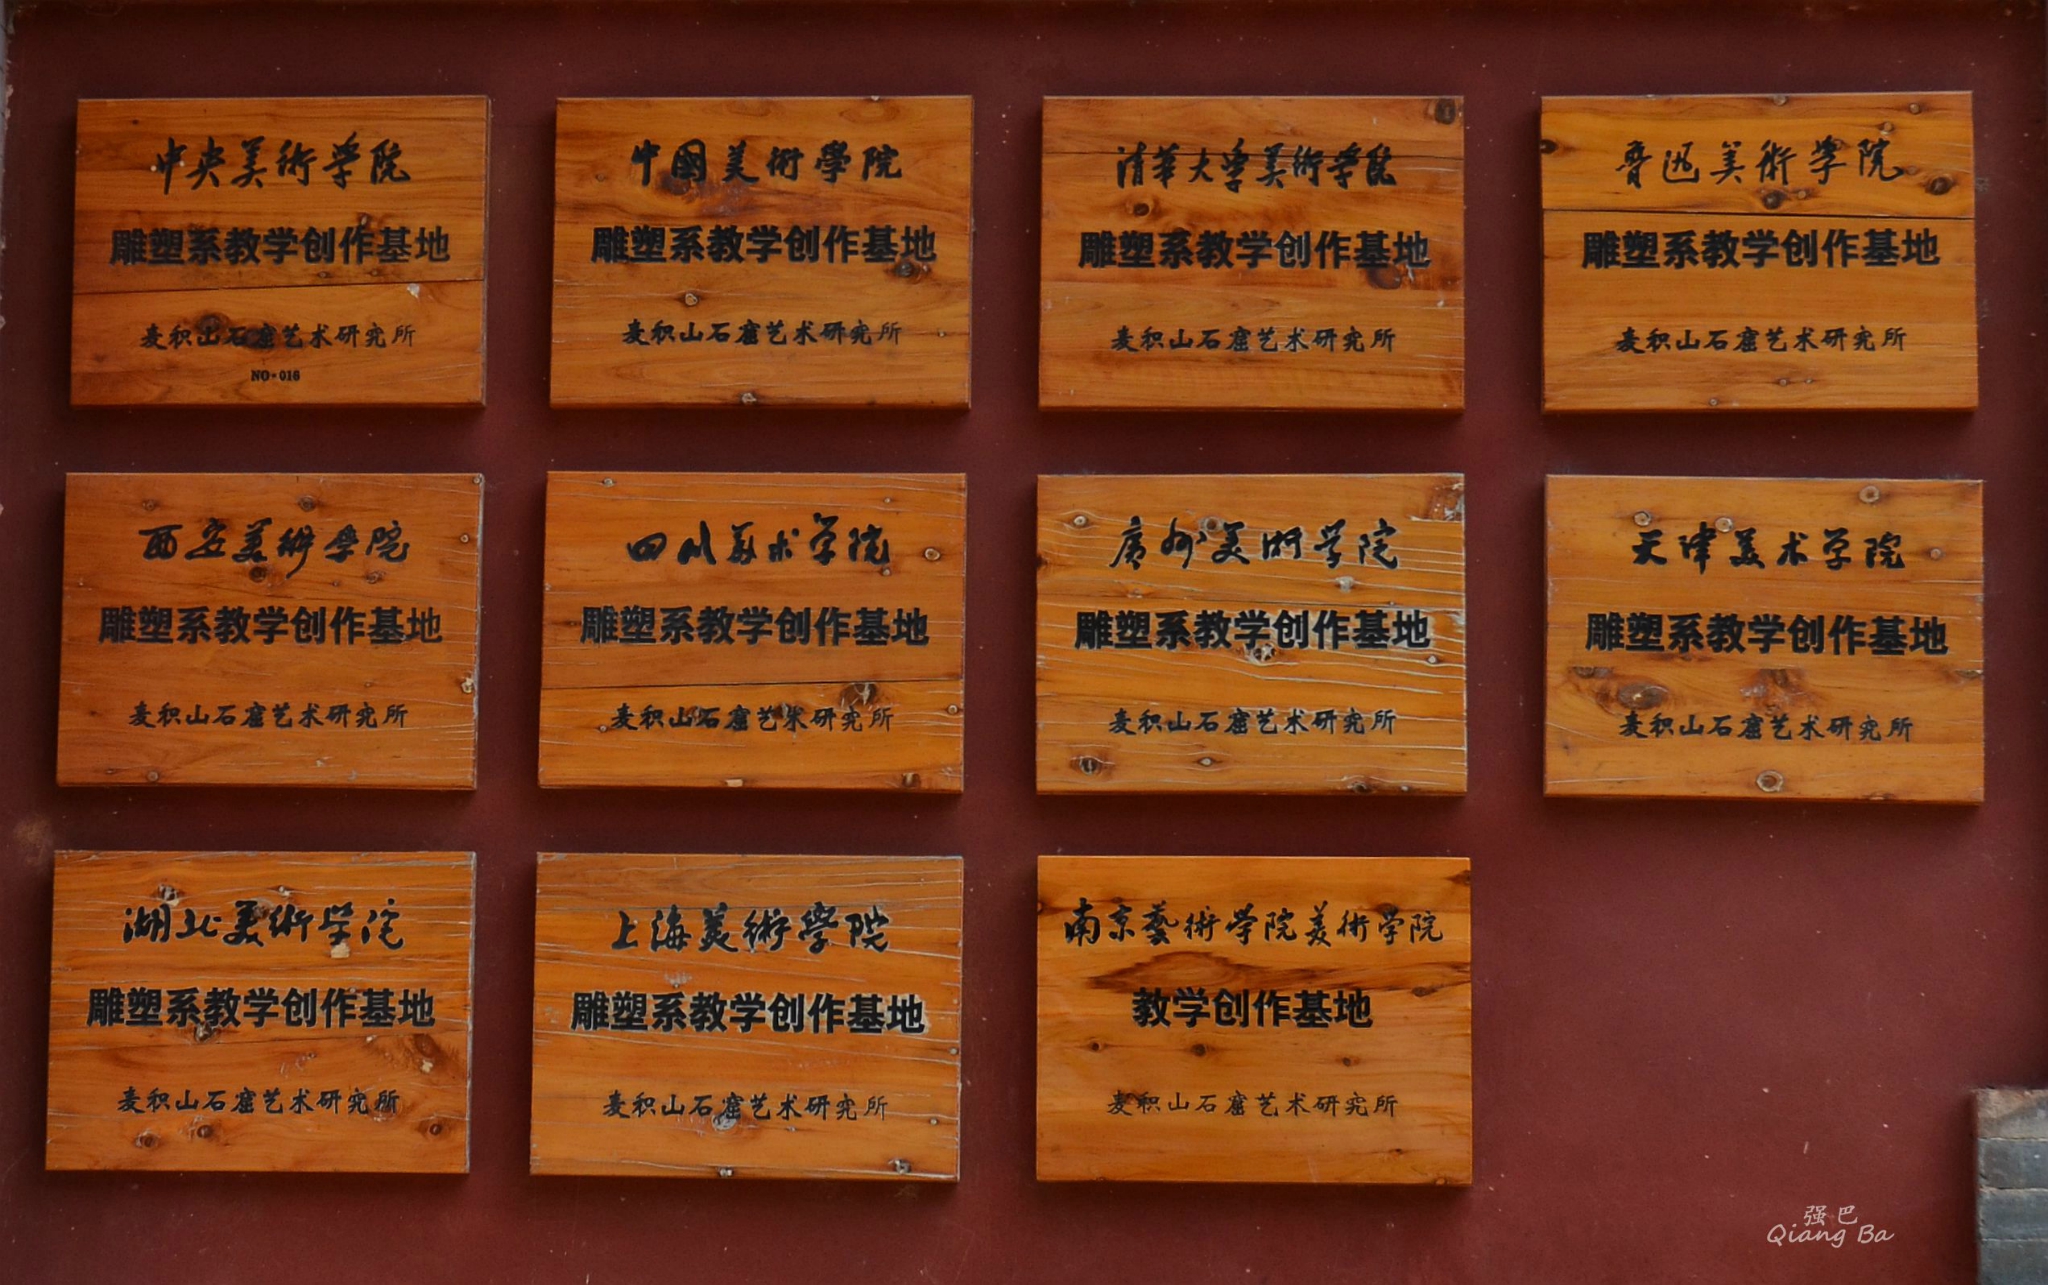 中央美術学院
雕塑系教学创作基地
麦积山石窟艺术研究所
NO·016
中國美術學院
雕塑系教学创作基地
麦积山石窟艺术研究所
清華大学美術学院
雕塑系教学创作基地
麦积山石窟艺术研究所
魯迅美術学院
雕塑系教学创作基地
麦积山石窟艺术研究所
西安美術學院
雕塑系教学创作基地
麦积山石窟艺术研究所
四川美术学院
雕塑系教学创作基地
麦积山石窟艺术研究所
广州美術学院
雕塑系教学创作基地
麦积山石窟艺术研究所
天津美术学院
雕塑系教学创作基地
麦积山石窟艺术研究所
湖北美術学院
雕塑系教学创作基地
麦积山石窟艺术研究所
上海美術學院
雕塑系教学创作基地
麦积山石窟艺术研究所
南京藝術学院美術学院
教学创作基地
麦积山石窟艺术研究所
强巴
Qiang Ba